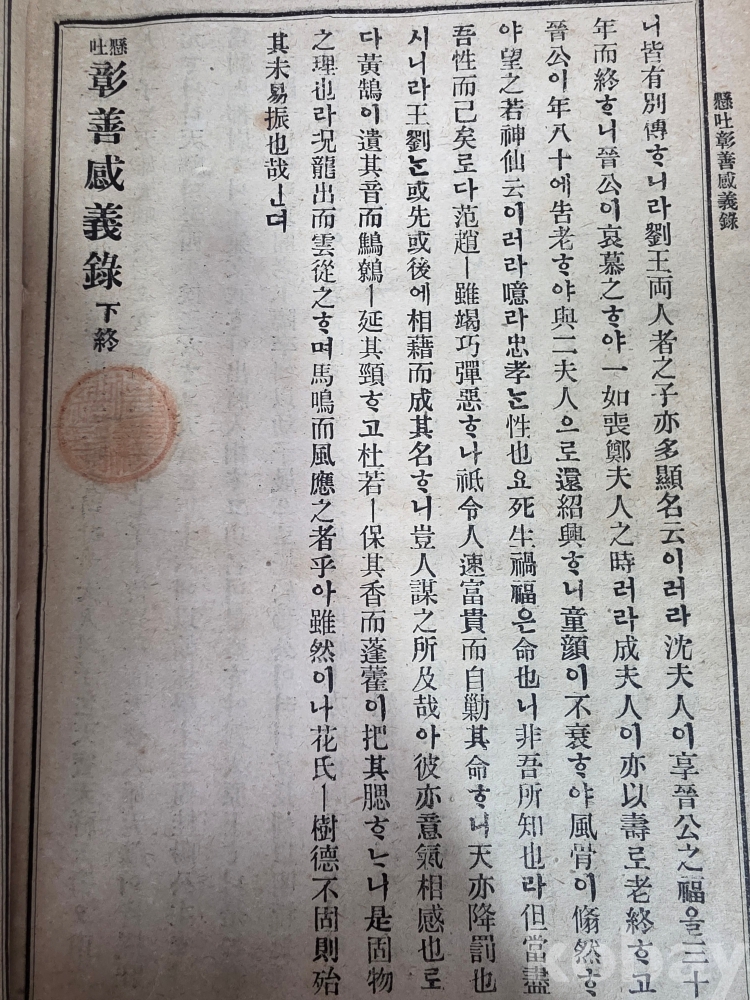 懸吐彰善感義錄
니皆有別傳ᄒᆞ니라劉王両人者之子亦多顯名云이러라沈夫人이享晉公之福을三十
年而終ᄒᆞ니晉公이哀慕之ᄒᆞ야一如喪鄭夫人之時러라成夫人이亦以壽로老終ᄒᆞ고
晉公이年八十에告老ᄒᆞ야與二夫人으로還紹興ᄒᆞ니童顔이不衰ᄒᆞ야風骨이翛然ᄒᆞ
야望之若神仙云이러라噫라忠孝ᄂᆞᆫ性也요死生禍福은命也니非吾所知也라但當盡
吾性而已矣로다范趙ㅣ雖竭巧彈惡ᄒᆞ나祇令人速富貴而自勦其命ᄒᆞ니天亦降罰也
시니라王劉ᄂᆞᆫ或先或後에相藉而成其名ᄒᆞ니豈人謀之所及哉아彼亦意氣相感也로
다黃鵠이遺其音而鷦鶵ㅣ延其頸ᄒᆞ고杜若ㅣ保其香而蓬藿이把其腮ᄒᆞᄂᆞ니是固物
之理也라况龍出而雲從之ᄒᆞ며馬鳴而風應之者乎아雖然이나花氏ㅣ樹德不固則殆
其未易振也哉ㄴ뎌
懸吐彰善感義錄 下終
kobay